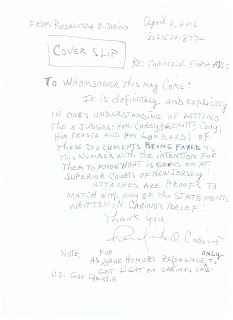 FROM: ROSALINDA O. CARINO
April 6, 2012
COVER SLIP
RE: CARINO V.
TO WHOMSOEVER THIS MAY COME!
IT IS DEFINITELY AND EXPLICITLY
IN ONE'S UNDERSTANDING OF LETTING
THE 3 JUDGES: HON. CODY,
HON FRASCA AND HON LOMBARDI OF
THESE DOCUMENTS BEING FAXED TO
THIS NUMBER WITH THE INTENTION FOR
THEM TO KNOW WHAT IS GOING ON AT
SUPERIOR COURTS OF NEW JERSEY!
ATTACHED ARE PROOFS TO
MATCH WITH ANY OF THE STATEMENTS
WRITTEN IN CARINO'S BRIEF!
THANK YOU,
Rosalinda O. Carino
NOTE: FOR ONLY
AS YOUR HONORS REFERENCE, TO
GET LIGHT ON CARINO'S CASE!
CC: GOV CHRISTIE